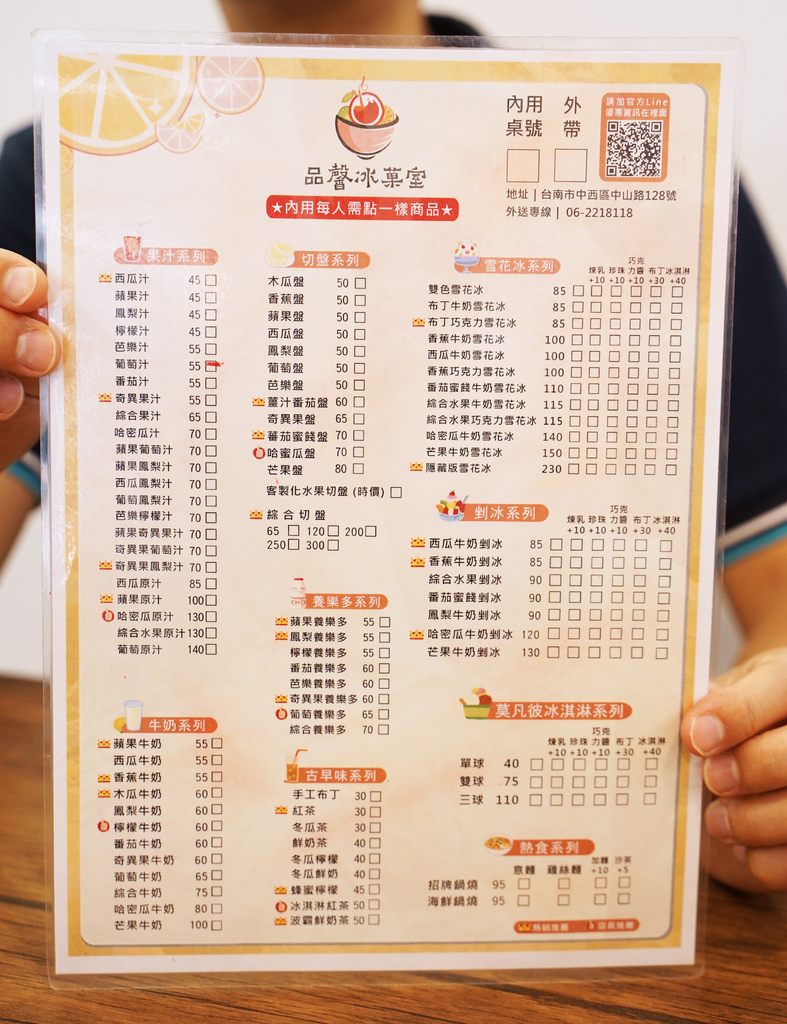 品馨冰菓室
★內用每人需點一樣商品★
內用桌號
外帶
請加官方Line
優惠資訊在裡面
地址｜台南市中西區中山路128號
外送專線｜ 06-2218118
果汁系列
西瓜汁 45
蘋果汁 45
鳳梨汁 45
檸檬汁 45
芭樂汁 55
葡萄汁 55
番茄汁 55
奇異果汁 55
綜合果汁 65
哈密瓜汁 70
蘋果葡萄汁 70
蘋果鳳梨汁 70
西瓜鳳梨汁 70
葡萄鳳梨汁 70
芭樂檸檬汁 70
蘋果奇異果汁 70
奇異果葡萄汁 70
奇異果鳳梨汁 70
西瓜原汁 85
蘋果原汁 100
哈密瓜原汁 130
綜合水果原汁 130
葡萄原汁 140
牛奶系列
蘋果牛奶 55
西瓜牛奶 55
香蕉牛奶 55
木瓜牛奶 60
鳳梨牛奶 60
檸檬牛奶 60
番茄牛奶 60
奇異果牛奶 60
葡萄牛奶 65
綜合牛奶 75
哈密瓜牛奶 80
芒果牛奶 100
切盤系列
木瓜盤 50
香蕉盤 50
蘋果盤 50
西瓜盤 50
鳳梨盤 50
葡萄盤 50
芭樂盤 50
薑汁番茄盤 60
奇異果盤 65
蕃茄蜜餞盤 70
哈蜜瓜盤 70
芒果盤 80
客製化水果切盤 (時價)
綜合切盤
65 120 200
250 300
養樂多系列
蘋果養樂多 55
鳳梨養樂多 55
檸檬養樂多 55
番茄養樂多 60
芭樂養樂多 60
奇異果養樂多 60
葡萄養樂多 65
綜合養樂多 70
古早味系列
手工布丁 30
紅茶 30
冬瓜茶 30
鮮奶茶 40
冬瓜檸檬 40
冬瓜鮮奶 40
蜂蜜檸檬 45
冰淇淋紅茶 50
波霸鮮奶茶 50
雪花冰系列
煉乳 珍珠 巧克力醬 布丁 冰淇淋
+10 +10 +10 +30 +40
雙色雪花冰 85
布丁牛奶雪花冰 85
布丁巧克力雪花冰 85
香蕉牛奶雪花冰 100
西瓜牛奶雪花冰 100
香蕉巧克力雪花冰 100
番茄蜜餞牛奶雪花冰 110
綜合水果牛奶雪花冰 115
綜合水果巧克力雪花冰 115
哈密瓜牛奶雪花冰 140
芒果牛奶雪花冰 150
隱藏版雪花冰 230
剉冰系列
煉乳 珍珠 巧克力醬 布丁 冰淇淋
+10 +10 +10 +30 +40
西瓜牛奶剉冰 85
香蕉牛奶剉冰 85
綜合水果剉冰 90
番茄蜜餞剉冰 90
鳳梨牛奶剉冰 90
哈密瓜牛奶剉冰 120
芒果牛奶剉冰 130
莫凡彼冰淇淋系列
煉乳 珍珠 巧克力醬 布丁 冰淇淋
+10 +10 +10 +30 +40
單球 40
雙球 75
三球 110
熱食系列
意麵 雞絲麵 加麵 沙茶
+10 +5
招牌鍋燒 95
海鮮鍋燒 95
熱銷推薦 店長推薦